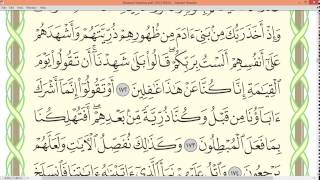 وَإِذْ أَخَذَ رَبُّكَ مِنۢ بَنِىٓ ءَادَمَ مِن ظُهُورِهِمْ ذُرِّيَّتَهُمْ وَأَشْهَدَهُمْ
عَلَىٰٓ أَنفُسِهِمْ أَلَسْتُ بِرَبِّكُمْ قَالُوا۟ بَلَىٰ شَهِدْنَآ أَن تَقُولُوا۟ يَوْمَ
ٱلْقِيَٰمَةِ إِنَّا كُنَّا عَنْ هَٰذَا غَٰفِلِينَ ١٧٢ أَوْ تَقُولُوٓا۟ إِنَّمَآ أَشْرَكَ
ءَابَآؤُنَا مِن قَبْلُ وَكُنَّا ذُرِّيَّةً مِّنۢ بَعْدِهِمْ أَفَتُهْلِكُنَا
بِمَا فَعَلَ ٱلْمُبْطِلُونَ ١٧٣ وَكَذَٰلِكَ نُفَصِّلُ ٱلْءَايَٰتِ وَلَعَلَّهُمْ
يَرْجِعُونَ ١٧٤ وَٱتْلُ عَلَيْهِمْ نَبَأَ ٱلَّذِىٓ ءَاتَيْنَٰهُ ءَايَٰتِنَا فَٱنسَلَخَ